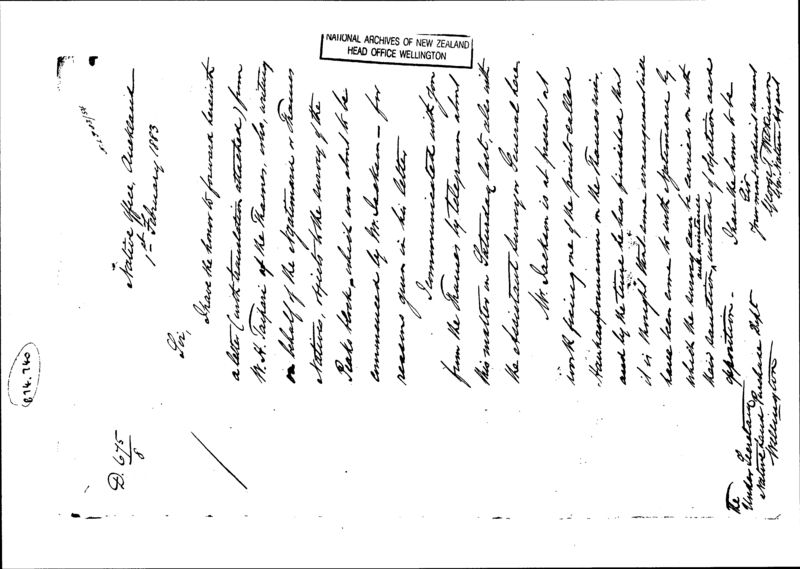 NATIONAL ARCHIVES OF NEW ZEALAND
HEAD OFFICE WELLINGTON
(B74.740)
D. 675/8
Native Office, Auckland
1st February, 1883
Sir,
I have the honor to forward herewith
a letter (with translation attached) from
W. H. Taipari of the Thames, who, writing
on behalf of the Ngatimaru or Thames
Natives, objects to the survey of the
block, which was about to be
commenced by Mr. Jackson – for
reasons given in his letter
I communicated with
from the Thames by telegram about
this matter on Saturday last, also with
the Assistant Surveyor General here.
Mr. Jackson is at present at
work fixing one of the points called
on the Thames river,
and by the time he has finished that
it is thought that some arrangement will
have been come to with Ngatimaru by
which the survey can be carried on with
their sanction, instead of opposition
opposition –
I have the honor to be
Sir
Your most obedient servant
George T. Wilkinson
The
Under Secretary
Native Land Purchase Dept
Wellington